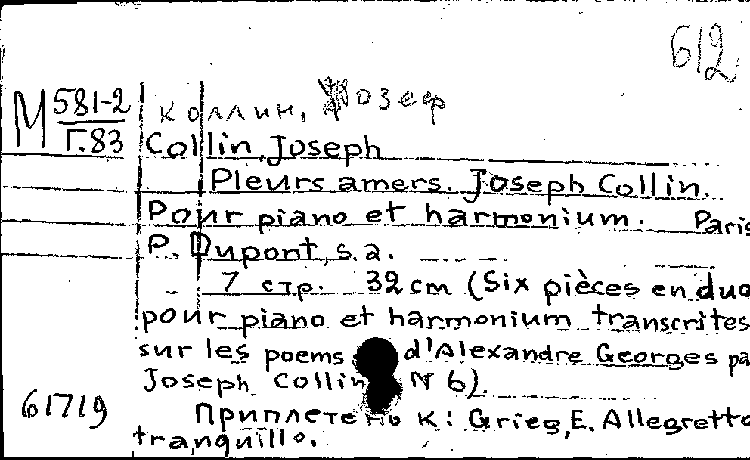 612
М 581-2
Г.83
Коллин, Жозеф
Collin, Joseph
Pleurs amers. Joseph Collin.
Pour piano et harmonium. Paris
P. Dupont, s.a.
7 стр. 32 cm (Six pièces en duo
pour piano et harmonium transcrites
sur les poems d'Alexandre Georges pa
Joseph Collin N 6).
61719
Приплетено к: Grieg, E. Allegretto
tranquillo.